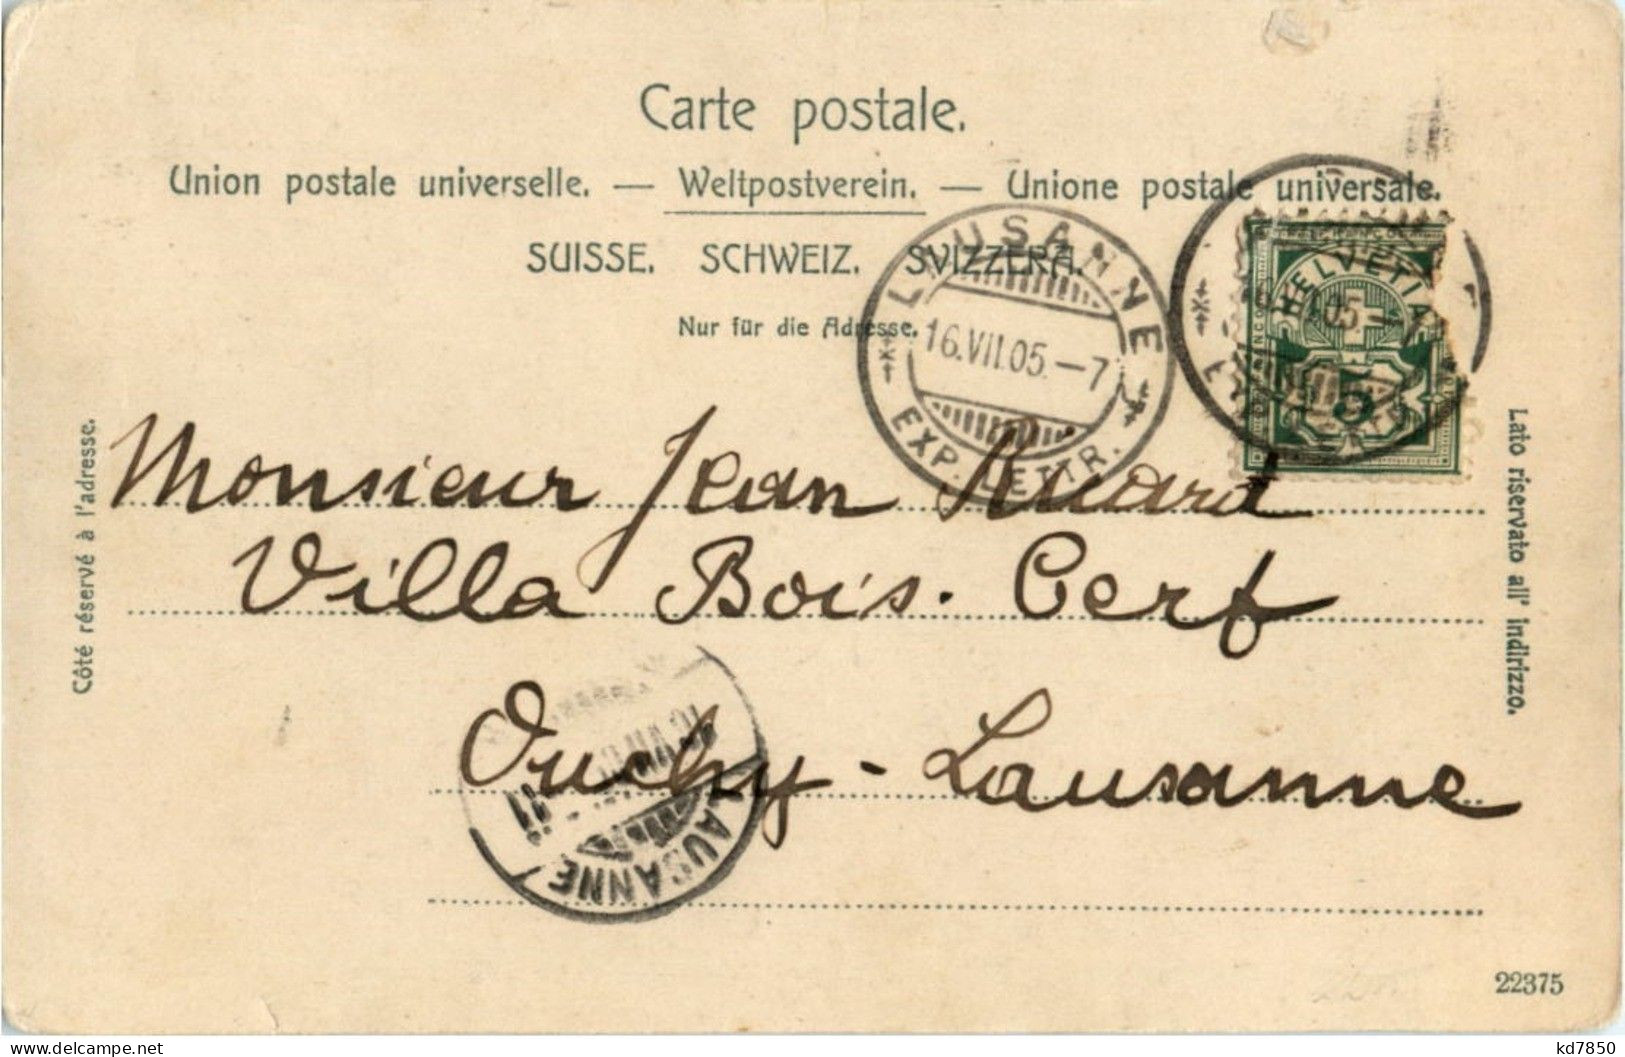 Carte postale.
Union postale universelle. — Weltpostverein. — Unione postale universale.
SUISSE. SCHWEIZ. SVIZZERA.
Nur für die Adresse.
LAUSANNE
16.VII.05.–7
EXP. LETTR.
HELVETIA
5
Côté réservé à l'adresse.
Lato riservato all' indirizzo.
Monsieur Jean Ruard
Villa Bois. Cerf
Ouchy - Lausanne
LAUSANNE
22375
delcampe.net
kd7850